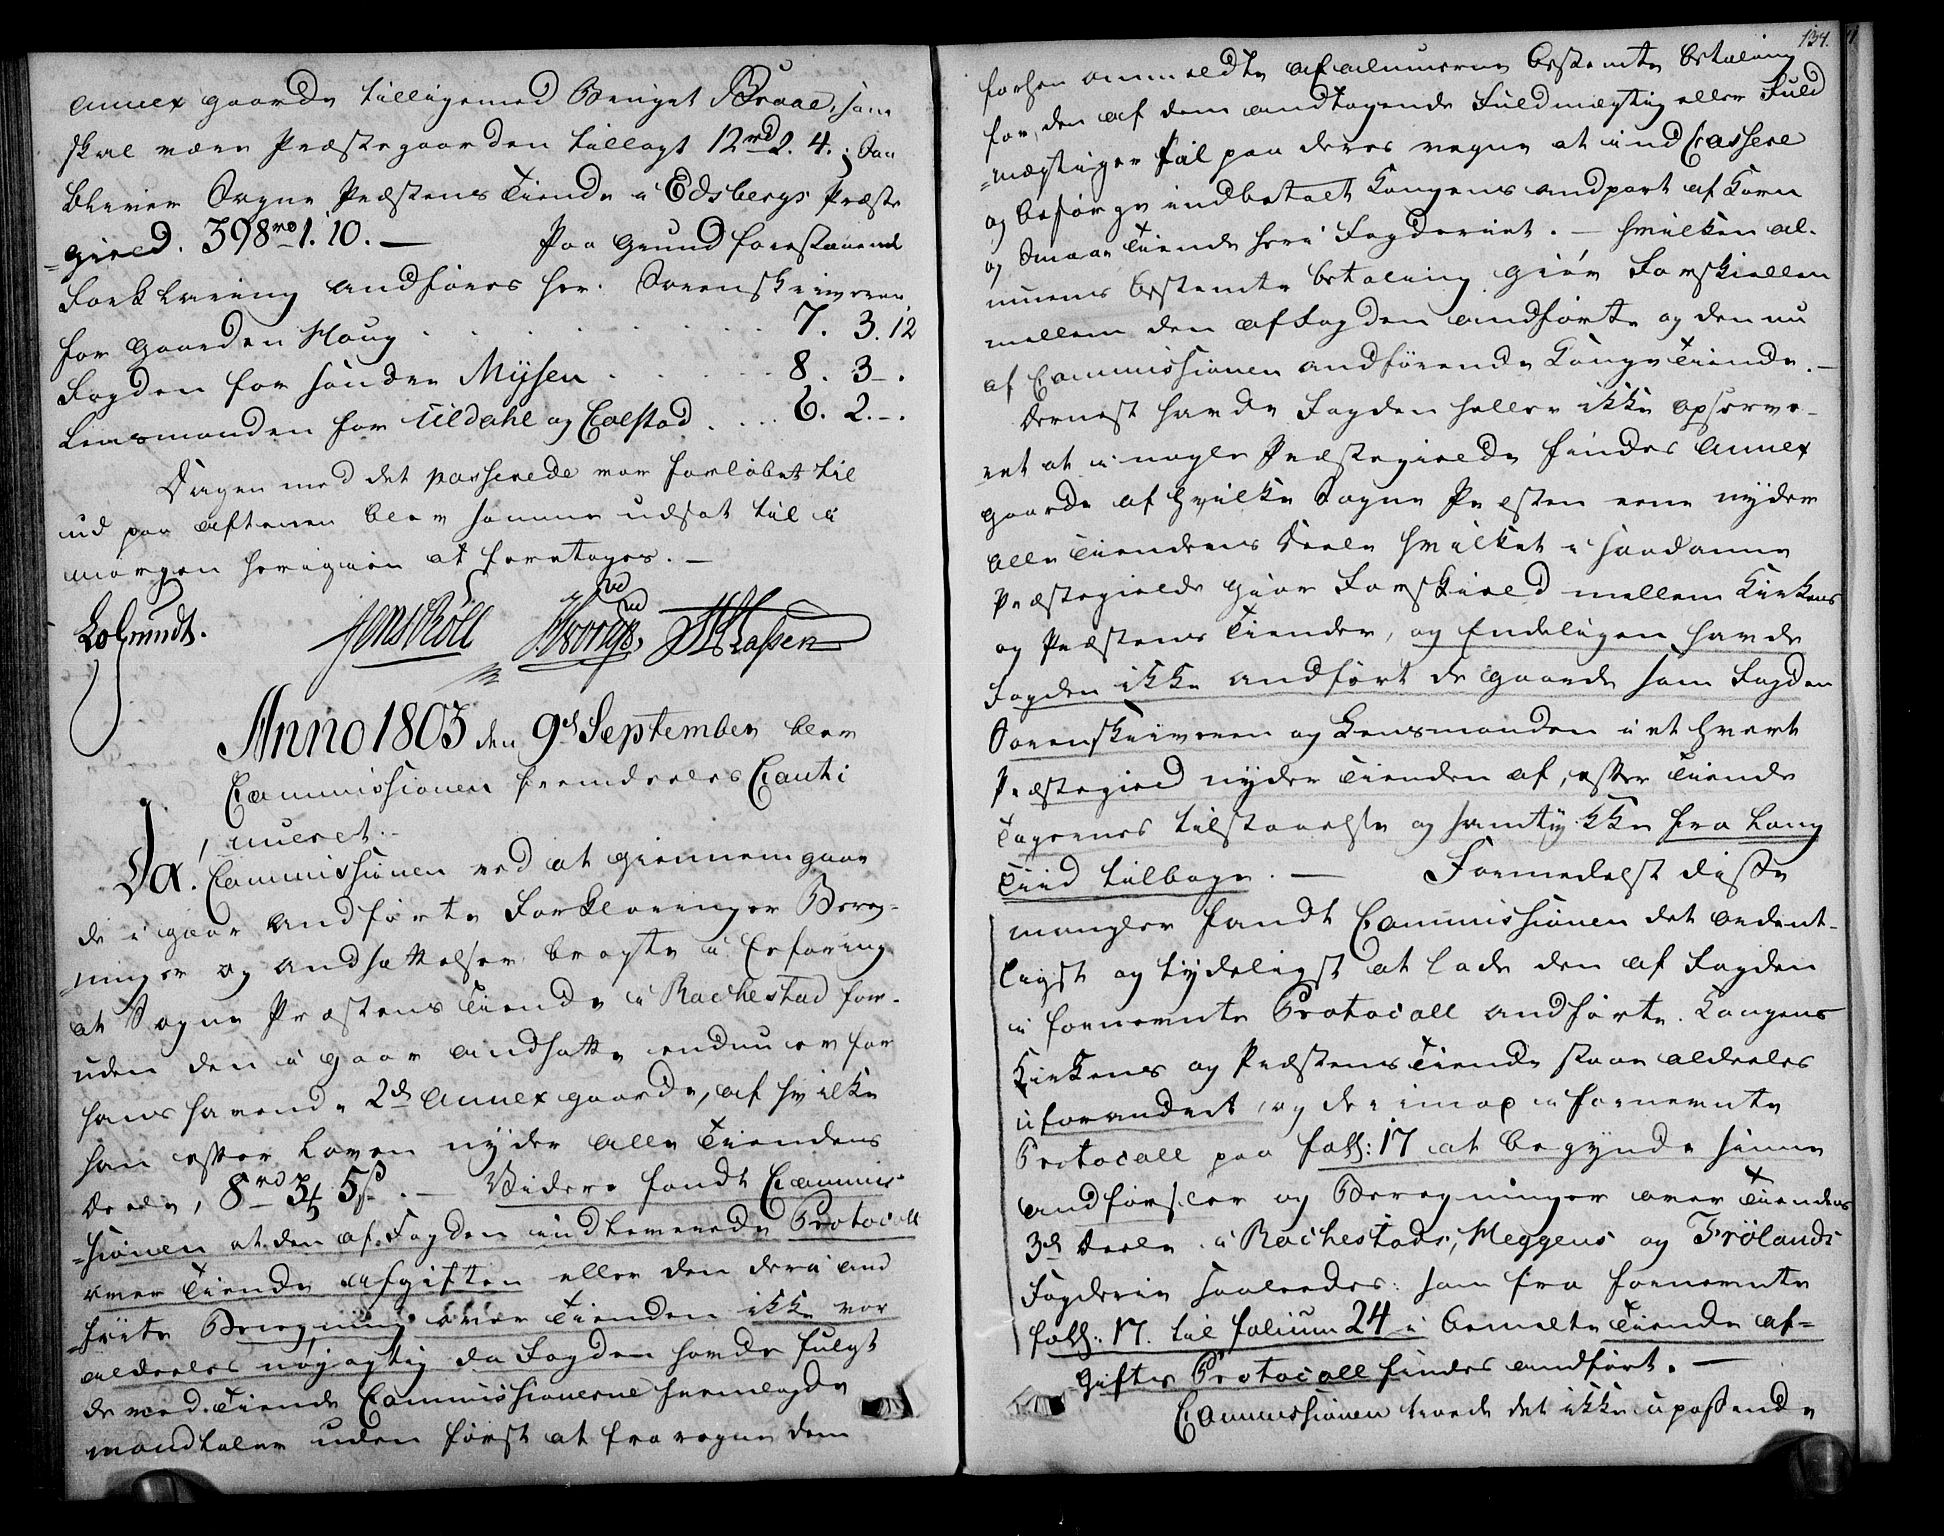 Annex gaarde tilligemed Beviget Braae, som
skal være Præstegaarden tillagt 12 rd 2. 4. ; Saa
bliver Sogne Præstens Tiende i Edsbergs Præste
=gield. 398 rd 1. 10. — Paa Grund forestaaende
Forklaring andføres her. Sorenskriveren
for Gaarden Houg . . . . . 7. 3. 12
Fogden for søndre Mysen . . . . . 8. 3 - .
Lensmanden for Uldahl og Calstad . . . . 6. 2. - .
Dagen med det passerede var forløbet til
ud paa aftenen blev samme udsat til i
morgen herigien at foretages. —
Jens Röll
Anno 1803 den 9d September blev
Commissionen fremdeeles Conti
nueret. -
Da. Commissionen ved at giennemgaae
de i gaar andførte Forklaringer Bereg-
ninger og andsættelser bragte i Erfaring
at Sogne Præstens Tiende i Rachestad for-
uden den i gaar andsatte endnu er for
hans havende 2de Annex gaarde, af hvilke
han efter Loven nyder alle Tiendens
Deele, 8 rd 3 5 s . — Videre fandt Commis-
=sionen at den af Fogden indleverede Protocoll
over Tiende afgiften eller den deri and
førte Beregning over Tienden ikke var
aldeeles nøjagtig da Fogden havde fulgt
de ved Tiende Commissionerne fremlagde
mandtaler uden først at fra regne dem
134.
forhen anmeldte af almuerne bestemte betaling
for, den af dem andtagende Fuldmægtig eller Fuld
=mægtiger til paa deres vegne at ind Cassere
og besørge indbetalt Kongens andpart af Korn
og Smaae Tiende her i Fogderiet. — hvilken al-
muens bestemte betaling giør Forskiellen
mellem den af Fogden andførte og den nu
af Commissionen andførende Konge Tiende. —
Dernest havde Fogden heller ikke opserve-
ret at i nogle Præstegielde findes Annex
gaarde af hvilke Sogne Præsten eene nyder
alle Tiendens Deele hvilket i saadanne
Præstegielde giør Forskield mellem Kirkens
og Præstens Tiender, og Endeligen havde
Fogden ikke andført de gaarde som Fogden
Sorenskriveren og Lensmanden i et hvert
Præstegield nyder Tienden af, efter Tiende
Tagernes tilstaaelse og samtykke fra Lang
Tiid tilbage . — Formedelst disse
mangler fandt Commissionen det ordent-
ligst og tydeligst at lade den af Fogden
i fornevnte Protocoll andførte. Kongens
Kirkens og Præstens Tiende staae aldeeles
uforandret, og derimod i fornevnte
Protocoll paa foll: 17 at begynde sinne
andførsler og Beregninger over Tiendens
3de Deele i Rachestads, Heggens og Frölands
Fogderie saaledes: som fra fornevnte
foll: 17. til folium 24 i bemelte Tiende af=
Gifts Protocoll findes andført. —
Commissionen troede det ikke upassende